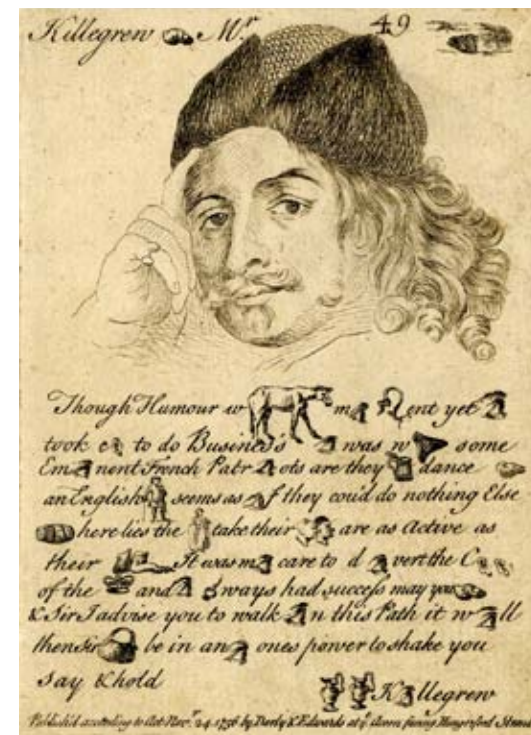 Killegrew Mr. 49
Though Humour w m lent yet
took c to do Business was w some
Em nent French Patr ots are they dance
an English seems as f they cou'd do nothing Else
here lies the take their are as Active as
their It was m care to d vert the C
of the and ways had success may you
& Sir I advise you to walk n this Path it w ll
then Sir be in an ones power to shake you
Say & hold
K llegrew
Publish'd according to Act Novr. 24. 1756 by Darly & Edwards at ye Acorn facing Hungerford Strand